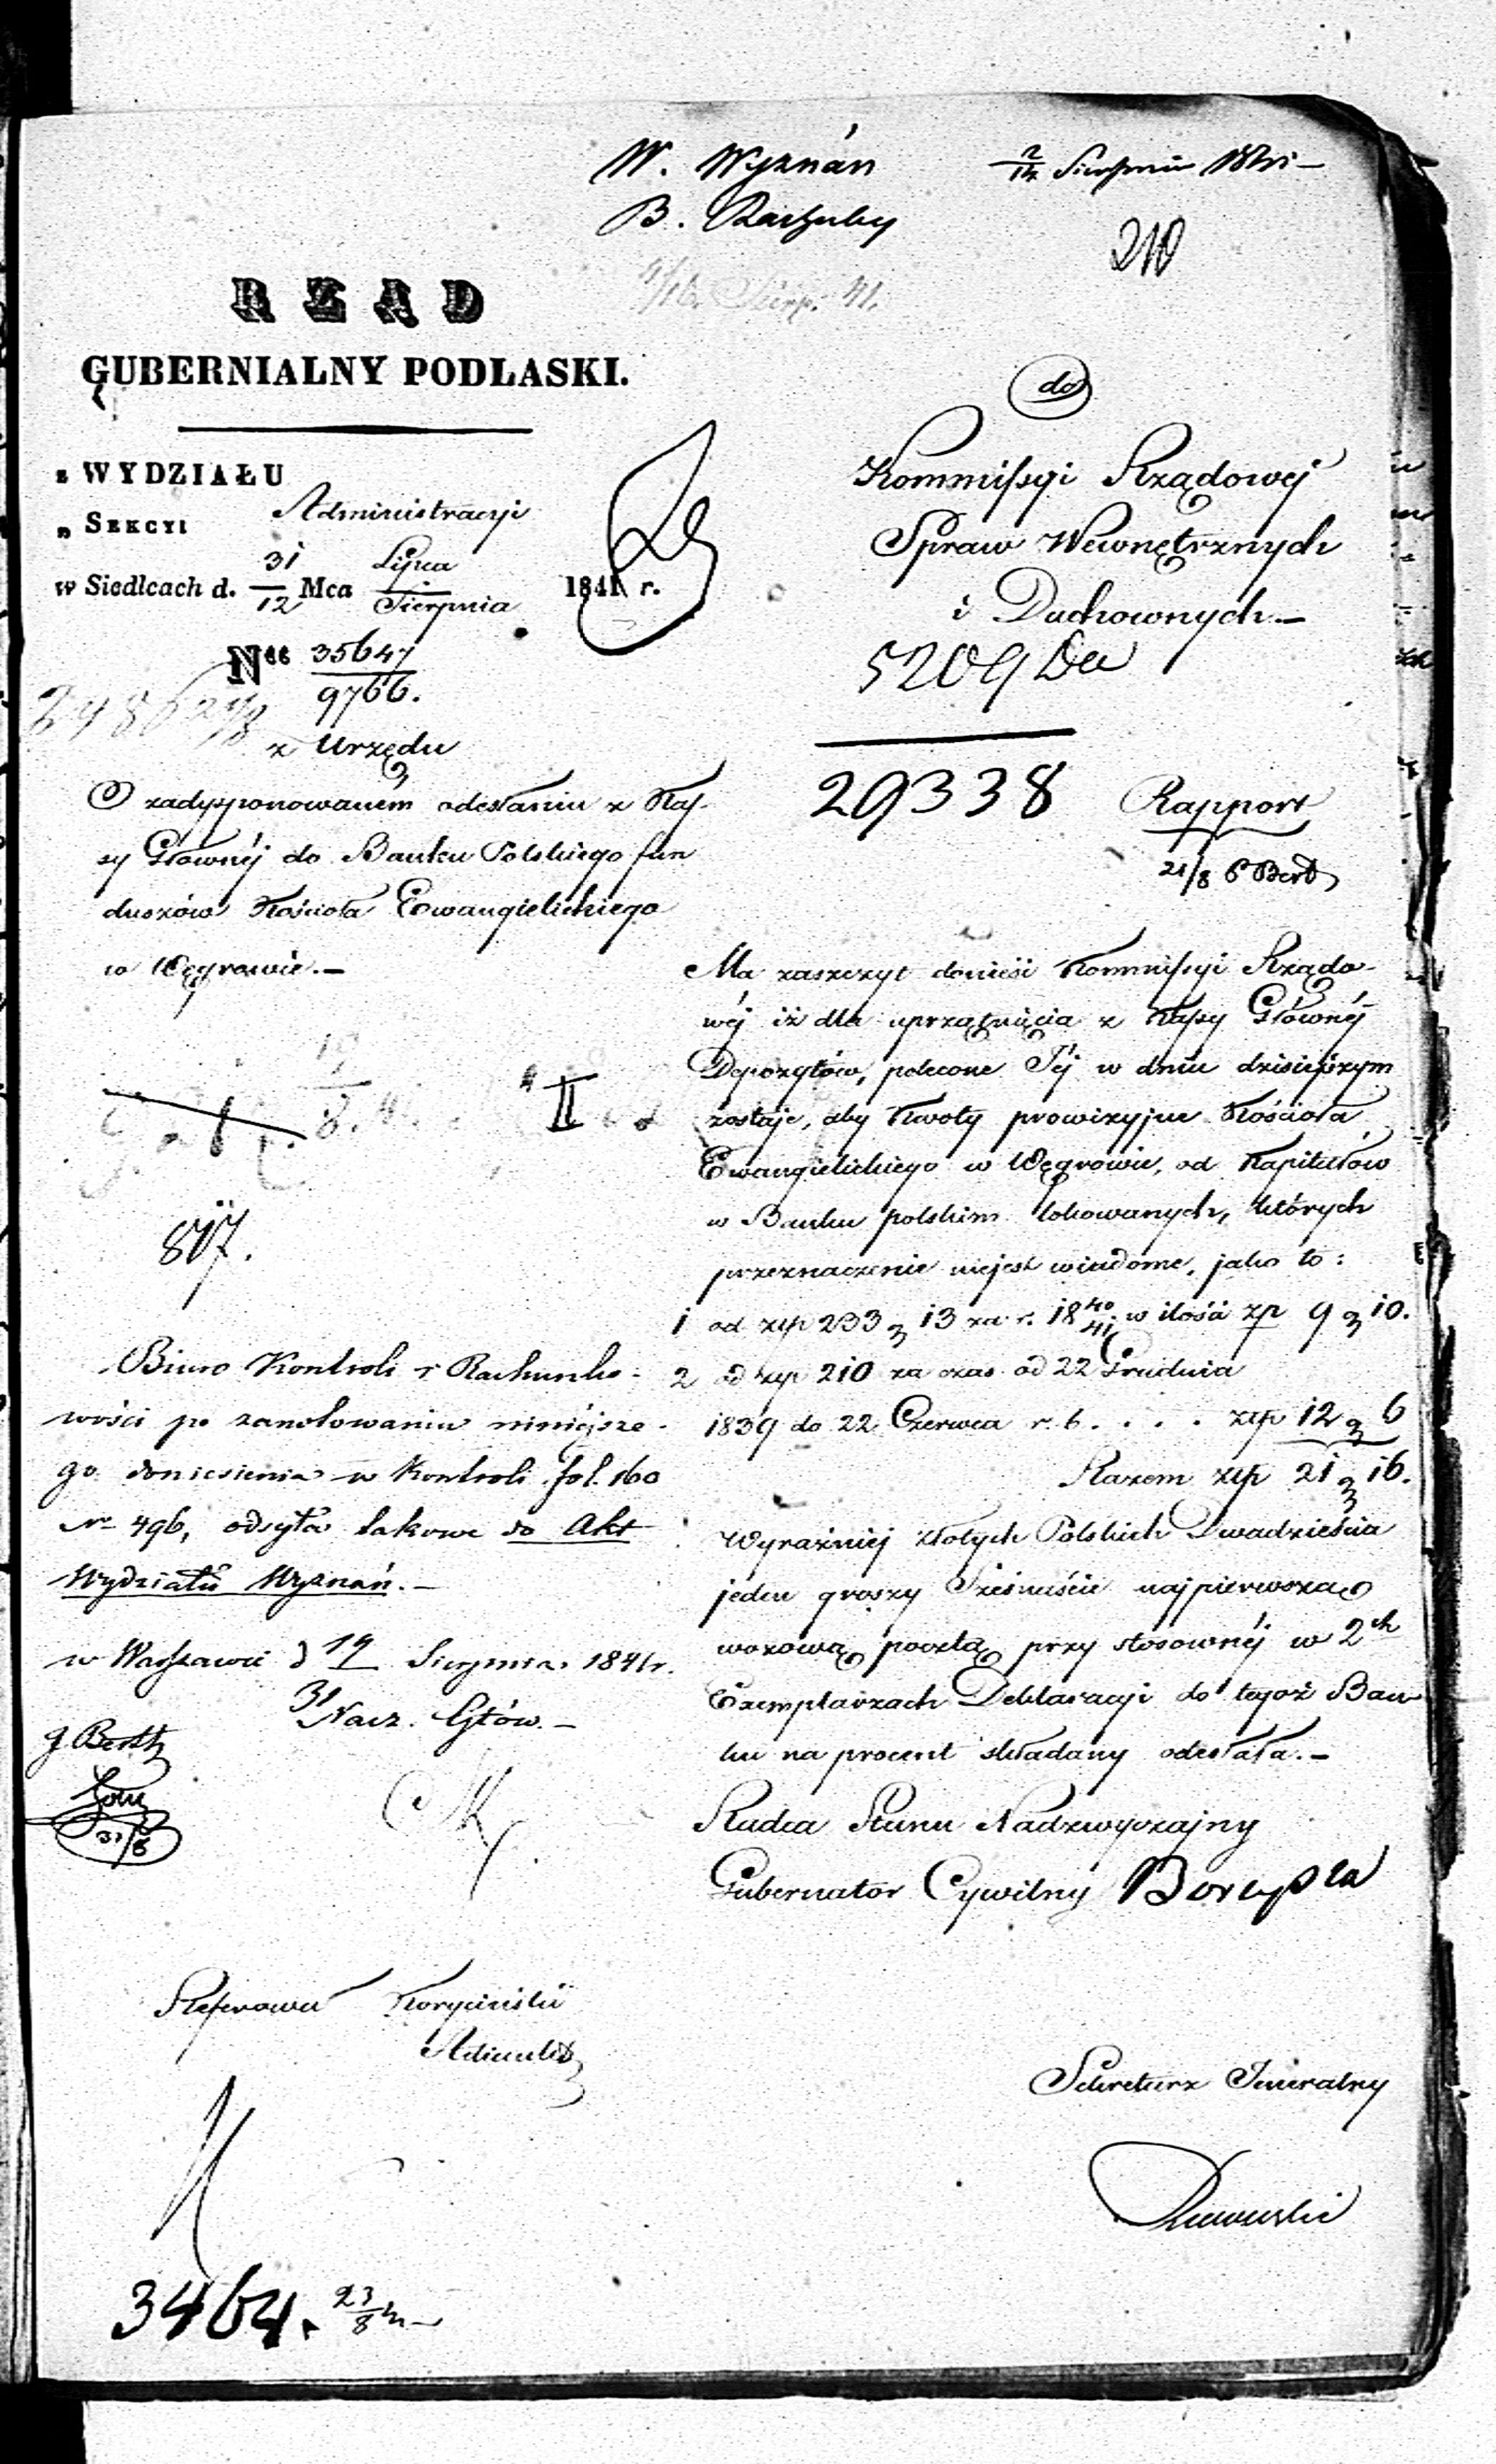 W. Wyznań
B. Rachuby
2/14 Sierpnia 1841 –
210
4/16 Sierp: 41.
RZĄD
GUBERNIALNY PODLASKI.
z WYDZIAŁU
Administracyi
„ SEKCYI
w Siedlcach d. 31/12 Mca Lipca/Sierpnia 1841 r.
Nro 35647/9766.
z Urzędu
O zadysponowaném odesłaniu z Kas-
sy Głównéj do Banku Polskiego fun
duszów Kościoła Ewangielickiego
w Węgrowie.–
do
Kommissyi Rządowéj
Spraw Wewnętrznych
i Duchownych.–
5209
29338
Rapport
21/8
Ma zaszczyt donieść Kommissyi Rządo-
wéj iż dla uprzątnięcia z Kassy Głównéj
Depozytów, polecone Jéj w dniu dzisiejszym
zostaje, aby Kwoty prowizyjne Kościoła
Ewangielickiego w Węgrowie, od Kapitałów
w Banku polskim lokowanych, których
przeznaczenie niejest wiadome, jako to:
1 od złp 233 g 13 za r. 1840/41 w ilości zp 9 g 10.
2 od złp 210 za czas od 22 Grudnia
1839 do 22 Czerwca r. b. . . . . złp 12 g 6
Razem złp 21 g 16.
Wyraźniéj złotych Polskich Dwadzieścia
jeden groszy Szesnaście najpierwszą
wozową pocztą przy stosownéj w 2ch
Exemplarzach Deklaracyi do tegoż Ban
ku na procent składany odesłała.–
Radca Stanu Nadzwyczajny
Gubernator Cywilny
II
877.
Biuro Kontroli i Rachunko-
wości po zanotowaniu niniejsze-
go doniesienia w Kontroli fol. 160
Nr 496, odsyła takowe do Akt
Wydziału Wyznań.–
w Warszawie d 19/31 Sierpnia 1841 r.
Nacz. Głów.–
31/8
Referował Koryciński
Adiunkt
Sekretarz Jeneralny
3464. 23/8